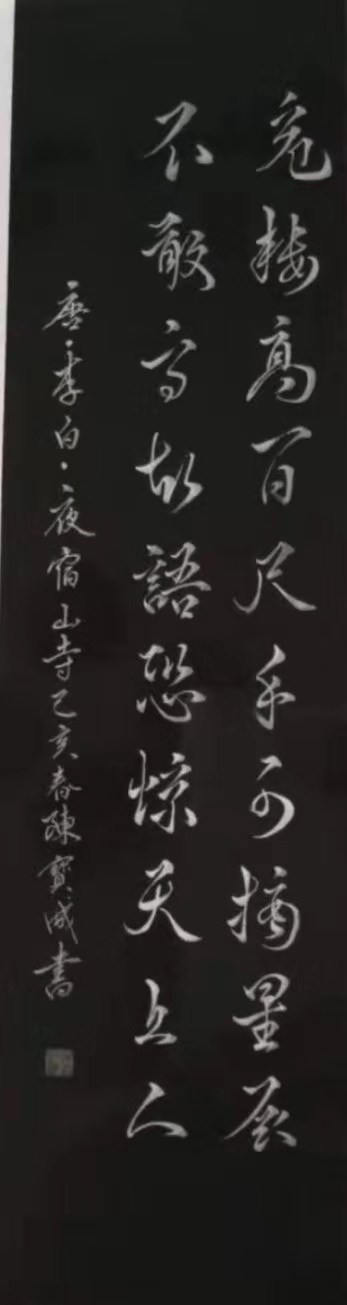 危楼高百尺手可摘星辰
不敢高声語恐惊天上人
唐·李白·夜宿山寺己亥春陳寶成書